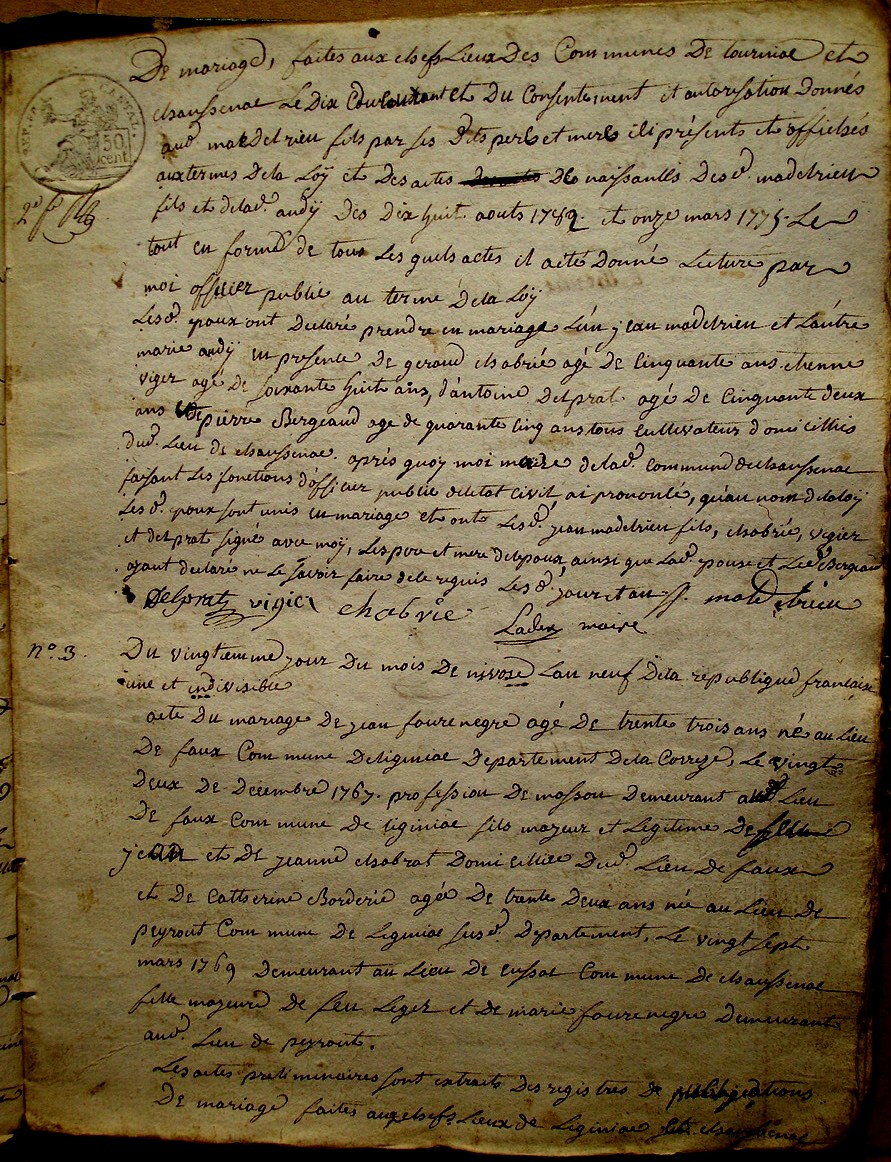 De mariage, faites aux chefs Lieux Des Communes De tourniac et
chaussenac Le Dix Du courant et Du Consentement et autorisation Donnés
aud. madelrieu fils par ses Dits pere et mere ici présents et
aux termes De la Loÿ et Des actes De naissances Desd. madelrieu
fils et de lad. andÿ Des Dix huit aouts 1782. et onze mars 1775. Le
tout en forme de tous Les quels actes il a eté Donné Lecture par
moi officier public au terme De la Loÿ
Lesd. epoux ont Declaré prendre en mariage L'un jean madelrieu et L'autre
marie andÿ en presence De geraud chabrié agé de Cinquante ans. etienne
vigier agé de soixante huit ans, d'antoine Delprat. agé De Cinquante deux
ans et De pierre Bergeaud age de quarante Cinq ans tous Cultivateurs domicilliés
dud. Lieu de chaussenac. aprés quoy moi maire de lad. Commune de chaussenac
faisant Les fonctions d'officier public de l'etat Civil, ai prononcé, qu'au nom de la loy
Lesd. epoux sont unis en mariage et ont Lesd. jean madelrieu fils, chabrié, vigier
et delprat signé avec moÿ, Les pere et mere de l'epoux ainsi que Lad. epouse et Led. Bergeaud
ayant declaré ne Le savoir faire de ce requis Lesd. jour et an J. madelrieu
Delprat vigier chabrie
Laden maire
n° 3. Du vingtieme jour Du mois De nivose L'an neuf de la republique française
une et indivisible
acte Du mariage De jean faurenegre agé De trente trois ans né au Lieu
De faux Commune de liginiac Departement De la Correze, Le vingt
Deux De Decembre 1767. profession De masson Demeurant aud. Lieu
De faux Commune De liginiac fils majeur et Legitime De
jean et De jeanne chabrat Domicilliée Dud. Lieu De faux
et De Catherine Borderie agée De trente Deux ans née au Lieu De
peyrout Commune De Liginiac susd. Departement, Le vingt sept
mars 1769 Demeurant au Lieu De cussac Commune De chaussenac
fille majeure De feu Leger et De marie faurenegre Demeurant
aud. Lieu de peyrout.
Les actes preliminaires sont extraits des registres de publications
De mariage faites aux chefs Lieux de Liginiac et chaussenac